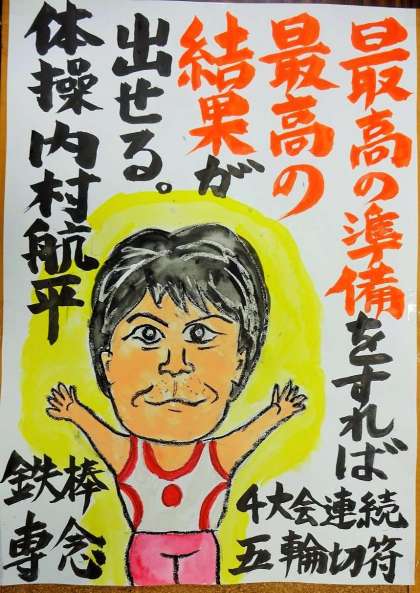 最高の準備をすれば
最高の
結果が
出せる。
体操内村航平
鉄棒
専念
4大会連続
五輪切符